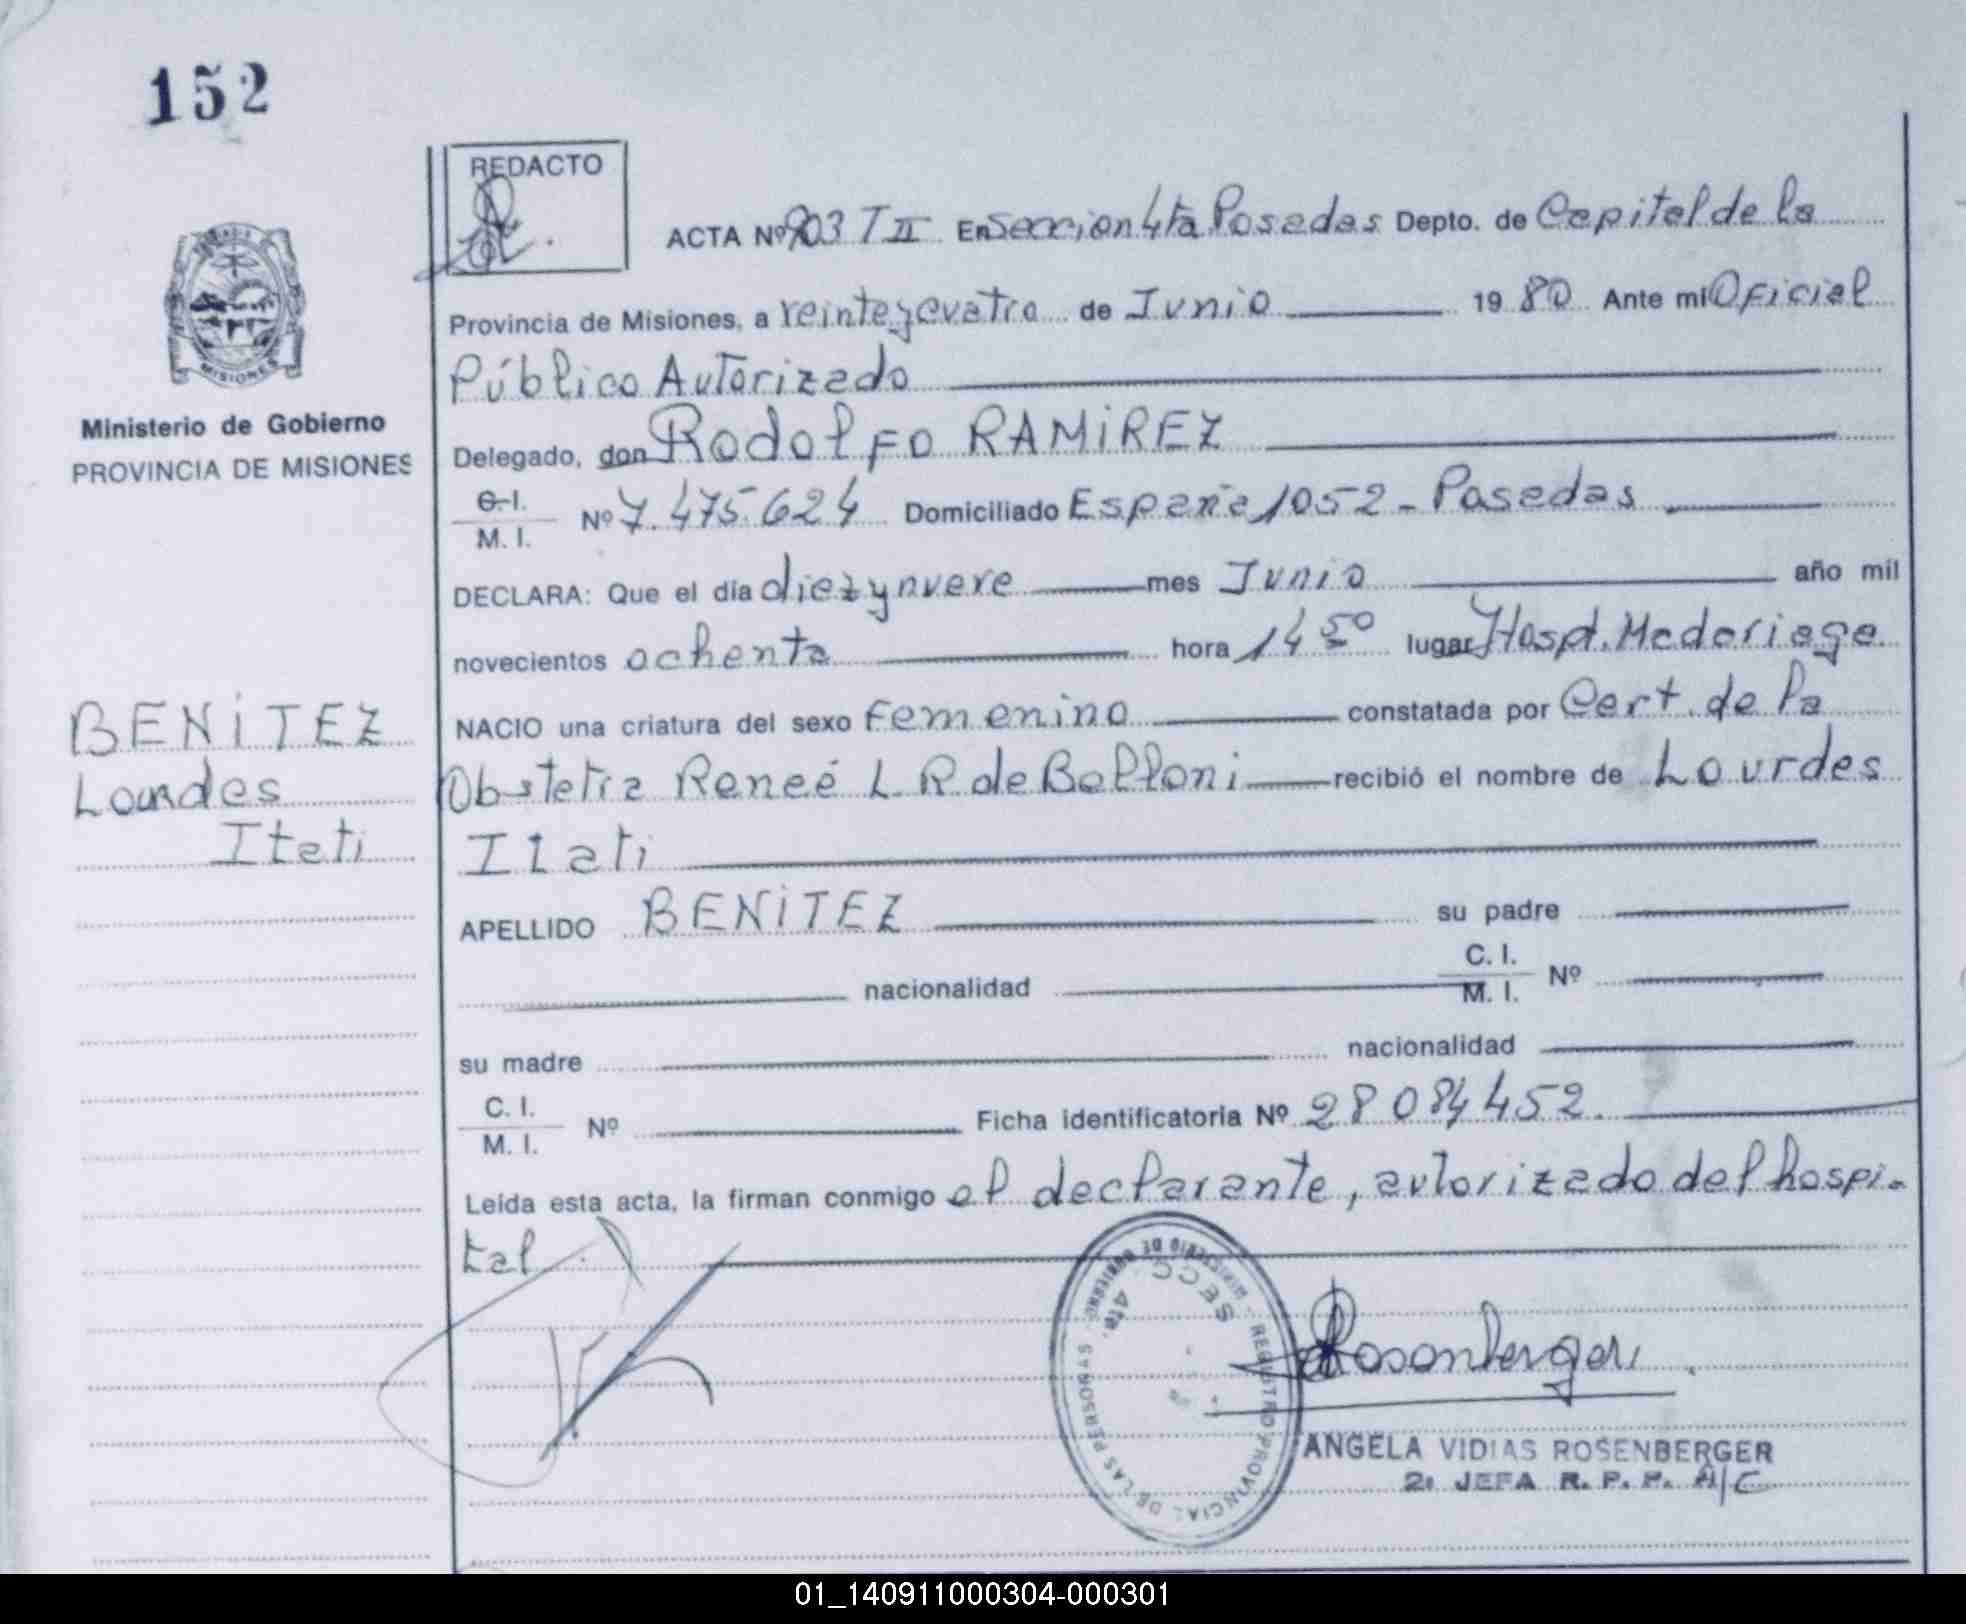 152
REDACTO
ACTA Nº 903 T II En Seccion 4ta Posadas Depto. de Capital de la
Provincia de Misiones, a veinteycuatro de Junio 1980 Ante mi Oficial
Público Autorizado
Ministerio de Gobierno
PROVINCIA DE MISIONES
MISIONES
Delegado, don Rodolfo RAMIREZ
C. I.
M. I.
Nº 7.475.624 Domiciliado España 1052 - Posadas
DECLARA: Que el día diezynueve mes Junio año mil
novecientos ochenta hora 14 50 lugar Hosp. Madariaga
NACIO una criatura del sexo femenino constatada por Cert. de la
Obstetriz Reneé L. R de Belloni recibió el nombre de Lourdes
Itati
BENITEZ
Lourdes
Itati
APELLIDO BENITEZ su padre
nacionalidad C. I.
M. I. Nº
su madre nacionalidad
C. I.
M. I. Nº Ficha identificatoria Nº 28084452.
Leída esta acta, la firman conmigo el declarante, autorizado del hospi-
tal
REGISTRO PROVINCIAL DE LAS PERSONAS
MINISTERIO DE GOBIERNO
SECC 4ta.
Rosenberger
ANGELA VIDIAS ROSENBERGER
2: JEFA R. P. P. A/C
01_140911000304-000301